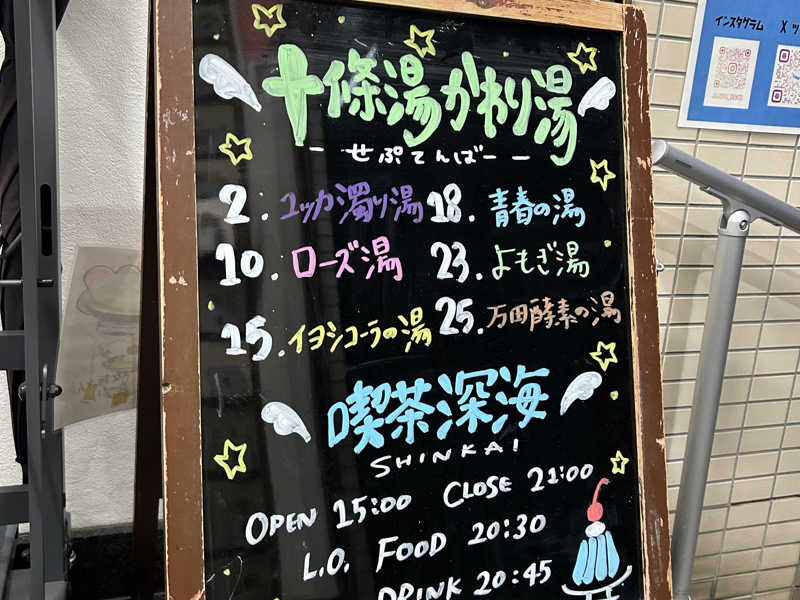 インスタグラム X
十條湯かわり湯
- せぷてんばー -
2. ユッカ濁り湯
10. ローズ湯
15. イヨシコーラの湯
18. 青春の湯
23. よもぎ湯
25. 万田酵素の湯
喫茶深海
SHINKAI
OPEN 15:00 CLOSE 21:00
L.O. FOOD 20:30
DRINK 20:45